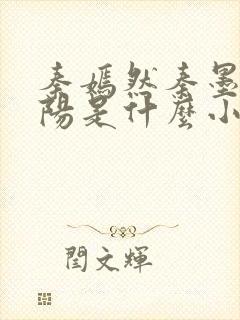 秦嫣然秦墨
陽是什麼小
閆文輝